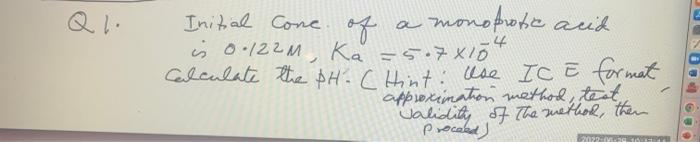 Q1. Initial Conc. of a monoprotic acid
is 0.122M, Ka = 5.7 x 10^-4
Calculate the pH. (Hint: Use ICE format,
approximation method, test
validity of the method, then
proceed)